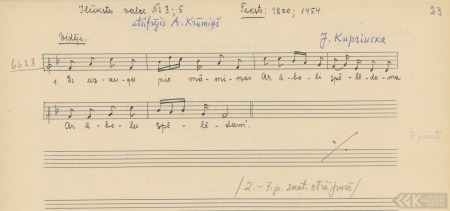 Ilūkstes valce № 3; 5 Teksts: 1820; 1454 23
atšifrējis A. Krūmiņš
Vidēji. J. Kupriucka
6628
1. Es uz-au-gu pie mā-mi-ņas Ar ā-bo-li spē-lē-da-ma
Ar ā-bo-lu spē-lē-dam'.
7 panti
/2.-7.p. skat. otrā pusē/